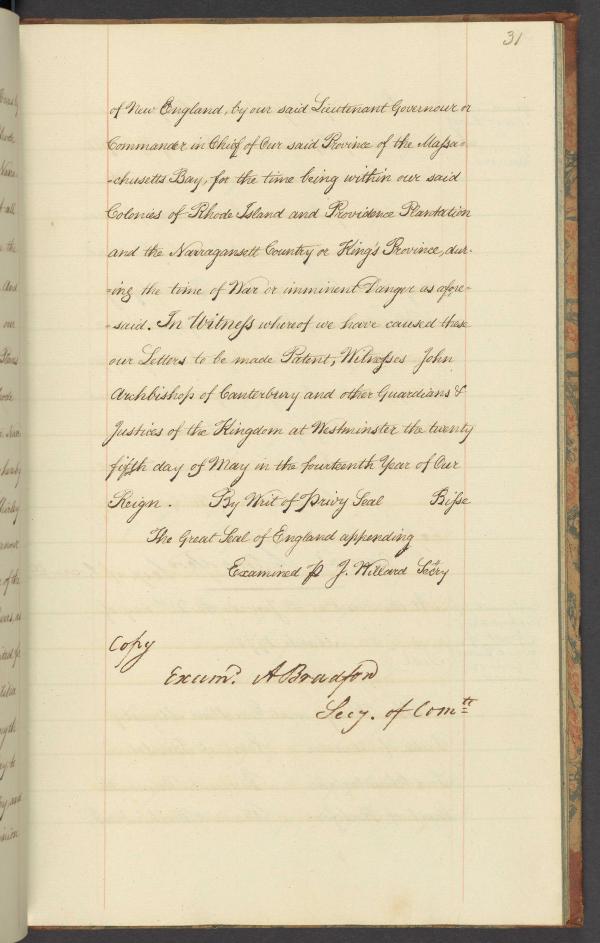 31
of New England, by our said Lieutenant Governour or
Commander in Chief of Our said Province of the Massa=
=chusetts Bay, for the time being within our said
Colonies of Rhode Island and Providence Plantation
and the Narragansett Country or King's Province, dur-
=ing the time of War or imminent Danger as afore=
=said. In Witness whereof we have caused these
our Letters to be made Patent, Witnesses John
Archbishop of Canterbury and other Guardians &
Justices of the Kingdom at Westminster the twenty
fifth day of May in the fourteenth Year of Our
Reign. By Writ of Privy Seal Bisse
The Great Seal of England appending
Examined p J. Willard Secry
Copy
Examd. A Bradford
Secy. of Comte